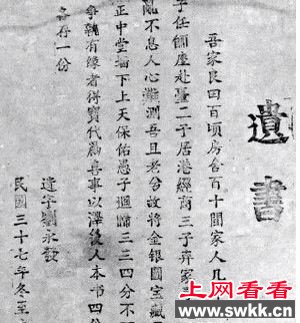 遺書
吾家良田百頃房舍百十間家人几
子任師座赴臺二子居港經商三子弃家
亂不息人心難測吾且老舍故將金銀國宝藏
正中堂檐下上天保佑愚子迴歸二三四分不
爭執有緣者得寶代為善事以澤後人本书四分
各存一份
遺字劉永發
民國三十七年冬至
上网看看
www.swkk.cn